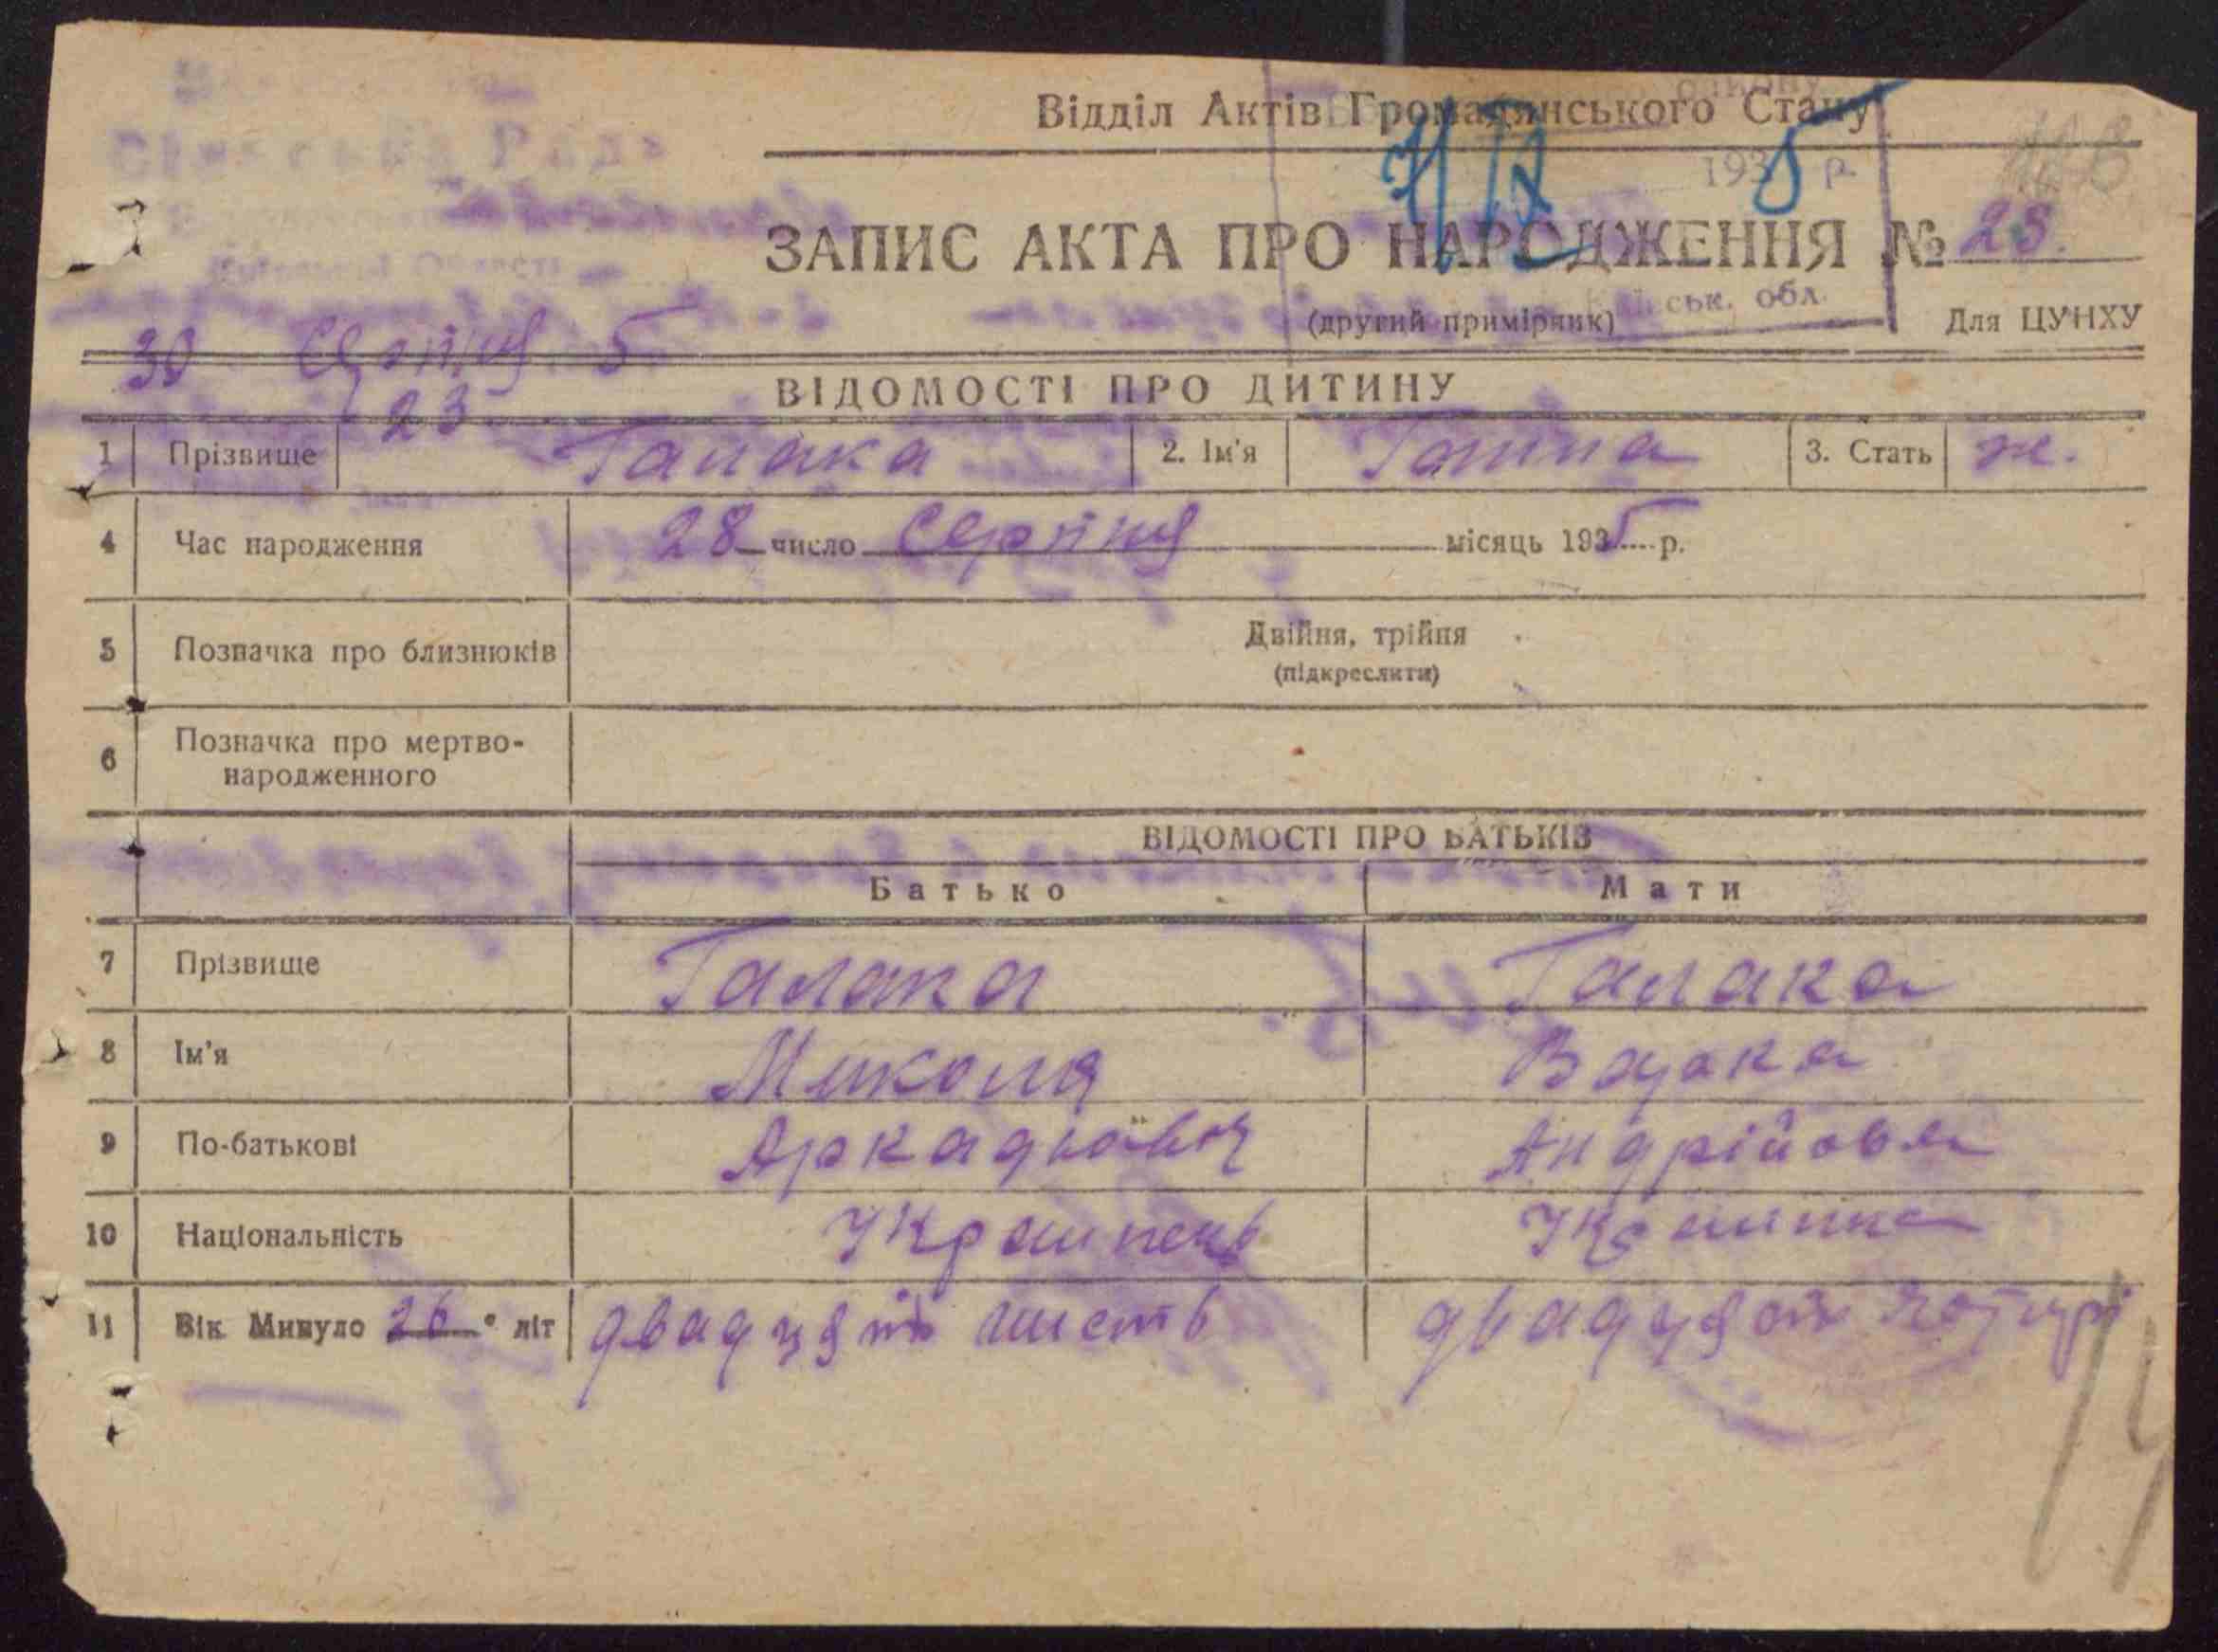 Сільська Рада
Київської Області
Відділ Актів Громадянського Стану
7/IX 1935 р.
ЗАПИС АКТА ПРО НАРОДЖЕННЯ № 23.
ськ. обл.
(другий примірник)
Для ЦУНХУ
30 Серпня 5
23
ВІДОМОСТІ ПРО ДИТИНУ
1 Прізвище Галака 2. Ім'я Ганна 3. Стать ж.
4 Час народження 28 число Серпня місяць 1935 р.
5 Позначка про близнюків Двійня, трійня
(підкреслити)
6 Позначка про мертво-
народженного
ВІДОМОСТІ ПРО БАТЬКІВ
Батько Мати
7 Прізвище Галака Галака
8 Ім'я Микола Варка
9 По-батькові Аркадьович Андрійовна
10 Національність Українець Українка
11 Вік Минуло 26 літ двадцять шисть двадцять чотирі